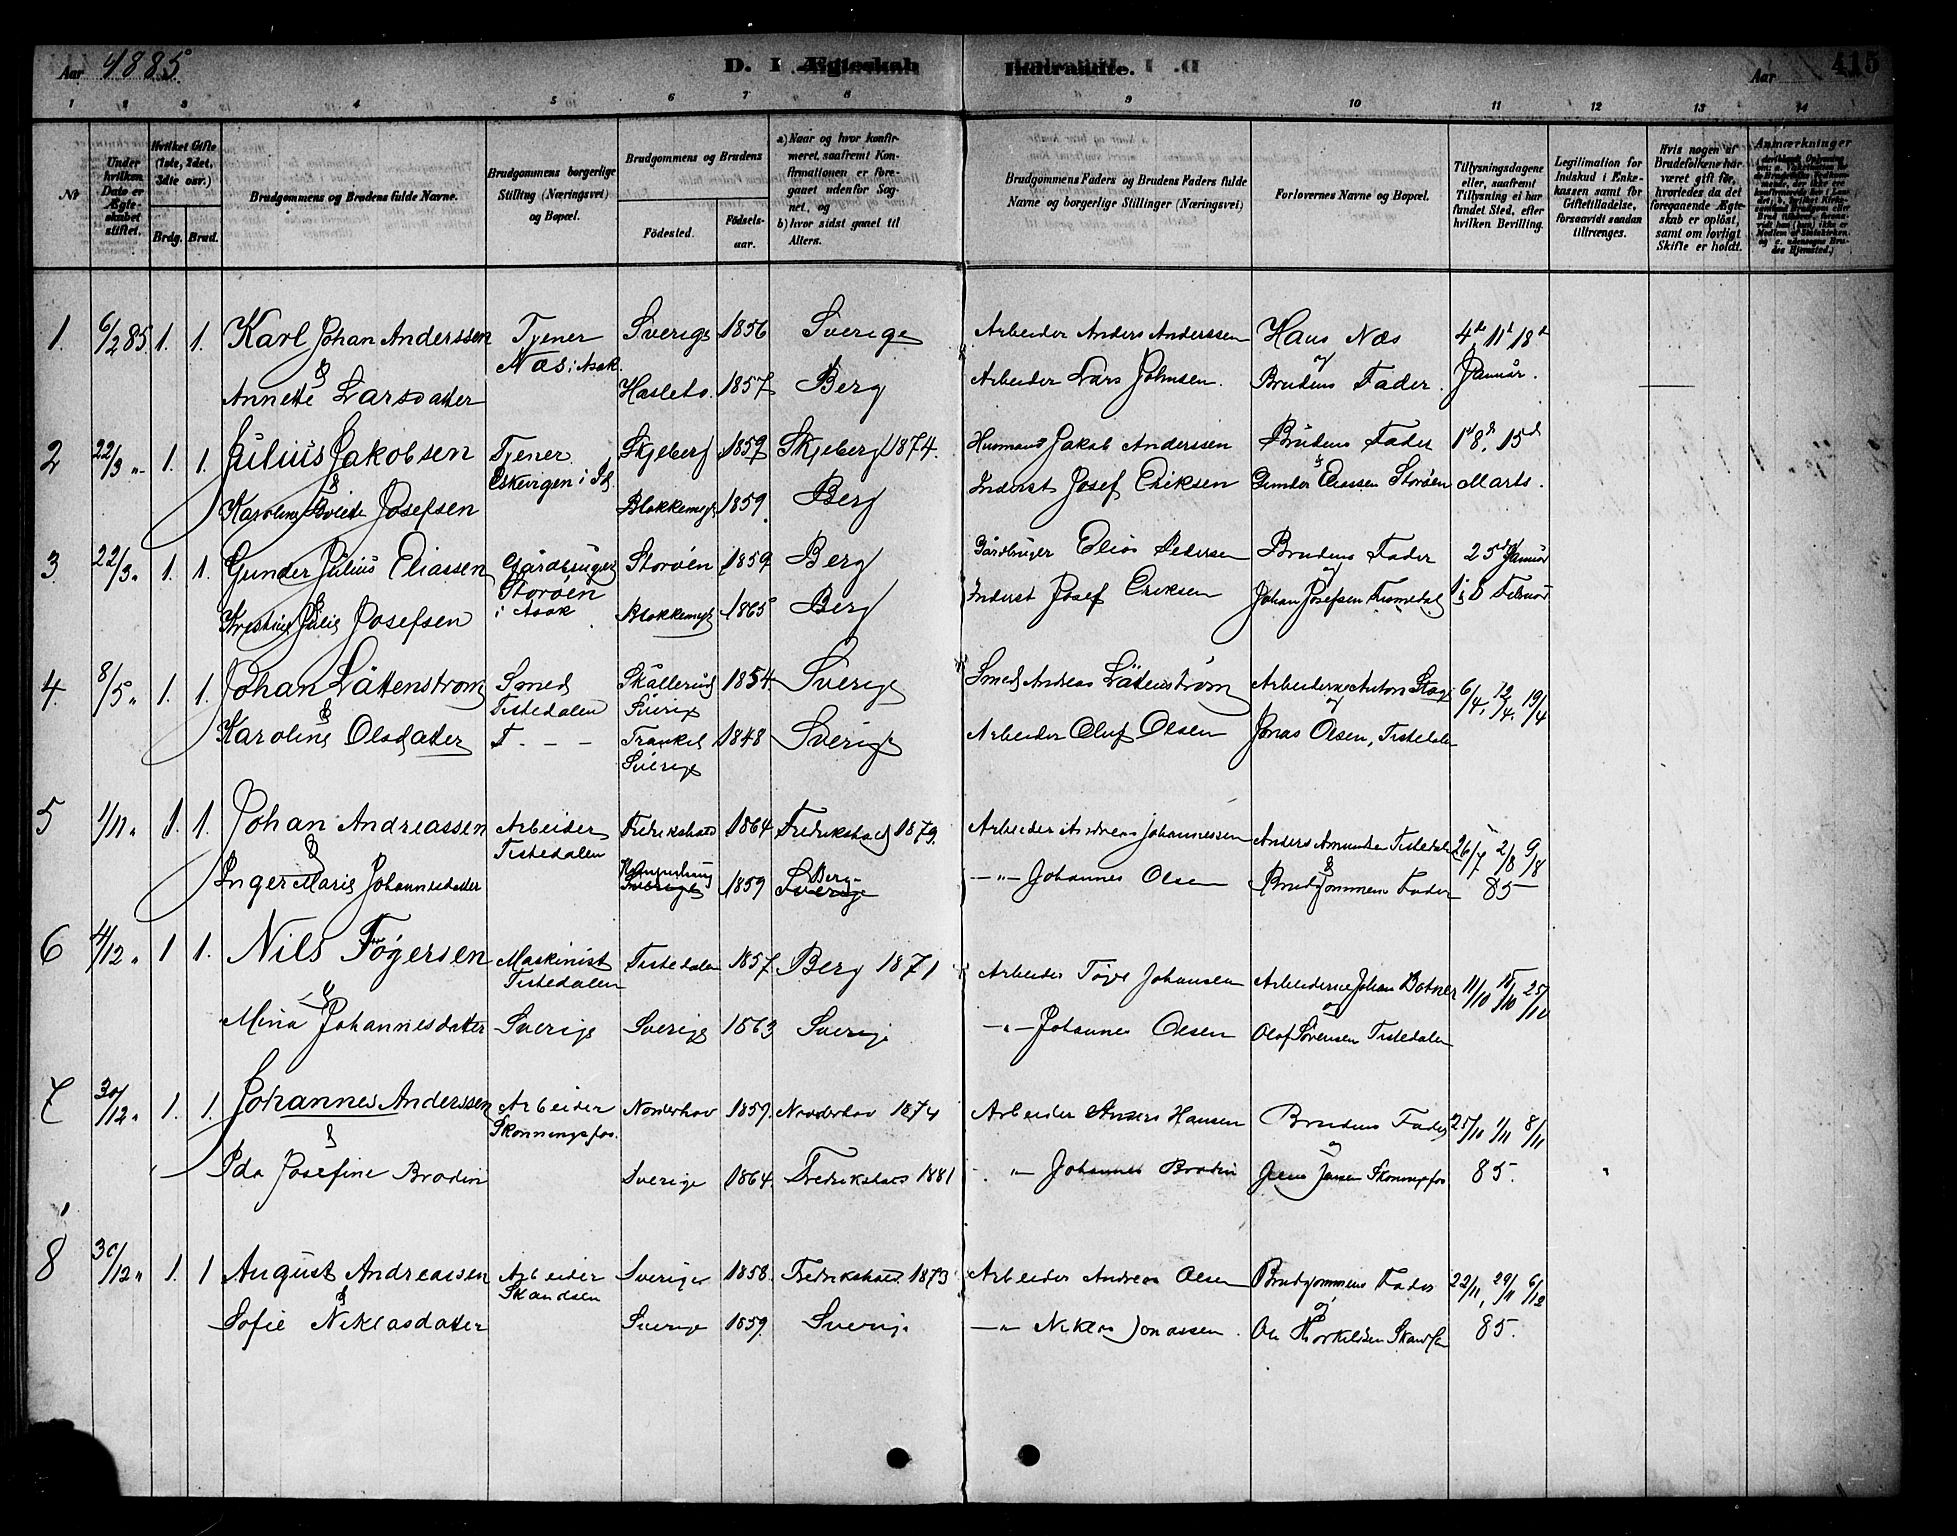 Aar 1885.
D. I Ægteskab
Indtraadte.
Aar
415
1 2 3 4 5 6 7 8 9 10 11 12 13 14
Nr
Under hvilken Dato er Ægteskabet stiftet.
Hvilket Gifte (1ste, 2det, 3die osv.)
Brdg. Brud.
Brudgommens og Brudens fulde Navne.
Brudgommens borgerlige Stilling (Næringsvei) og Bopæl.
Brudgommens og Brudens
Födested.
Födselsaar.
a) Naar og hvor konfirmeret, saafremt Konfirmationen er foregaaet udenfor Sognet, og
b) hvor sidst gaaet til Alters.
Brudgommens Faders og Brudens Faders fulde Navne og borgerlige Stillinger (Næringsvei)
Forlovernes Navne og Bopæl.
Tillysningsdagene eller, saafremt Tillysning ei har fundet Sted, efter hvilken Bevilling.
Legitimation for Indskud i Enkekassen samt for Giftetilladelse, forsaavidt saadan tiltrænges.
Hvis nogen af Brudefolkene har været gift før, hvorledes da det foregaaende Ægteskab er oplöst, samt om lovligt Skifte er holdt.
Anmærkninger
1. 6/2 85 1. 1. Karl Johan Anderssen Tjener Sverige 1856 Sverige Arbeider Anders Anderssen Hans Næs 4de 11te 18de
& Næs i Asak. og
Annette Larsdatter Haslebo. 1857 Berg Arbeider Lars Johnsen. Brudens Fader. Januar.
2 22/3 " 1. 1. Julius Jakobsen Tjener Skjeberg 1859 Skjeberg 1874. Husmand Jakob Anderssen Brudens Fader 1ste 8de 15de
& &
Karoline Josefsen 1859. Berg Inderst Josef Eriksen Gunder Eliassen Storöen Marts.
3 22/3 " 1. 1. Gunder Julius Eliassen Gårdbruger Storöen 1859 Berg Gårdbruger Elias Pedersen Brudens Fader 25de Januar
& Storöen i Asak og
Kristine Julie Josefsen 1865 Berg Inderst Josef Eriksen Johan Josefsen 1 & 8 Februar
4. 8/5 " 1. 1. Johan Lättenström Smed Skållerud 1854 Sverige Smed Andreas Lättenström Arbeiderne Anton 6/4, 12/4, 19/4
& Tistedalen Sverige og
Karoline Olsdatter T. - - Trankil 1848 Sverige Arbeider Oluf Olsen Jonas Olsen, Tistedalen
Sverige
5 1/11 " 1. 1. Johan Andreassen Arbeider Fredrikshald 1864 Fredrikshald 1879. Arbeider Andreas Johannessen Anders Amundsen Tistedalen 26/7 2/8 9/8
& Tistedalen Berg &
Inger Marie Johannesdatter Sverige 1859 Sverige -"- Johannes Olsen Brudgommens Fader 85
6 4/12 " 1 1. Nils Tögersen Maskinist Tistedalen 1857 Berg 1871 Arbeider Töger Johansen Arbeiderne Johan Botner 11/10 18/10 25/10
& Tistedalen og
Mina Johannesdatter Sverige Sverige 1863 Sverige -"- Johannes Olsen Olof Sörensen Tistedalen
7 30/12 " 1. 1. Johannes Anderssen Arbeider Norderhov 1859. Norderhov 1874 Arbeider Anders Hansen Brudens Fader 25/10 1/11 8/11
& Skonningsfos. og
Ida Josefine Brodin Sverige 1864. Fredrikshald 1881 " Johannes Brodin Jens Jansen Skonningsfos 85.
8 30/12 " 1. 1 August Andreassen Arbeider Sverige 1858. Fredrikshald 1873 Arbeider Andreas Olsen Brudgommens Fader 22/11, 29/11 6/12
& Skandsen og
Sofie Niklasdatter Sverige 1859. Sverige -"- Niklas Jonassen. Ole Thorkildsen Skandsen 85.